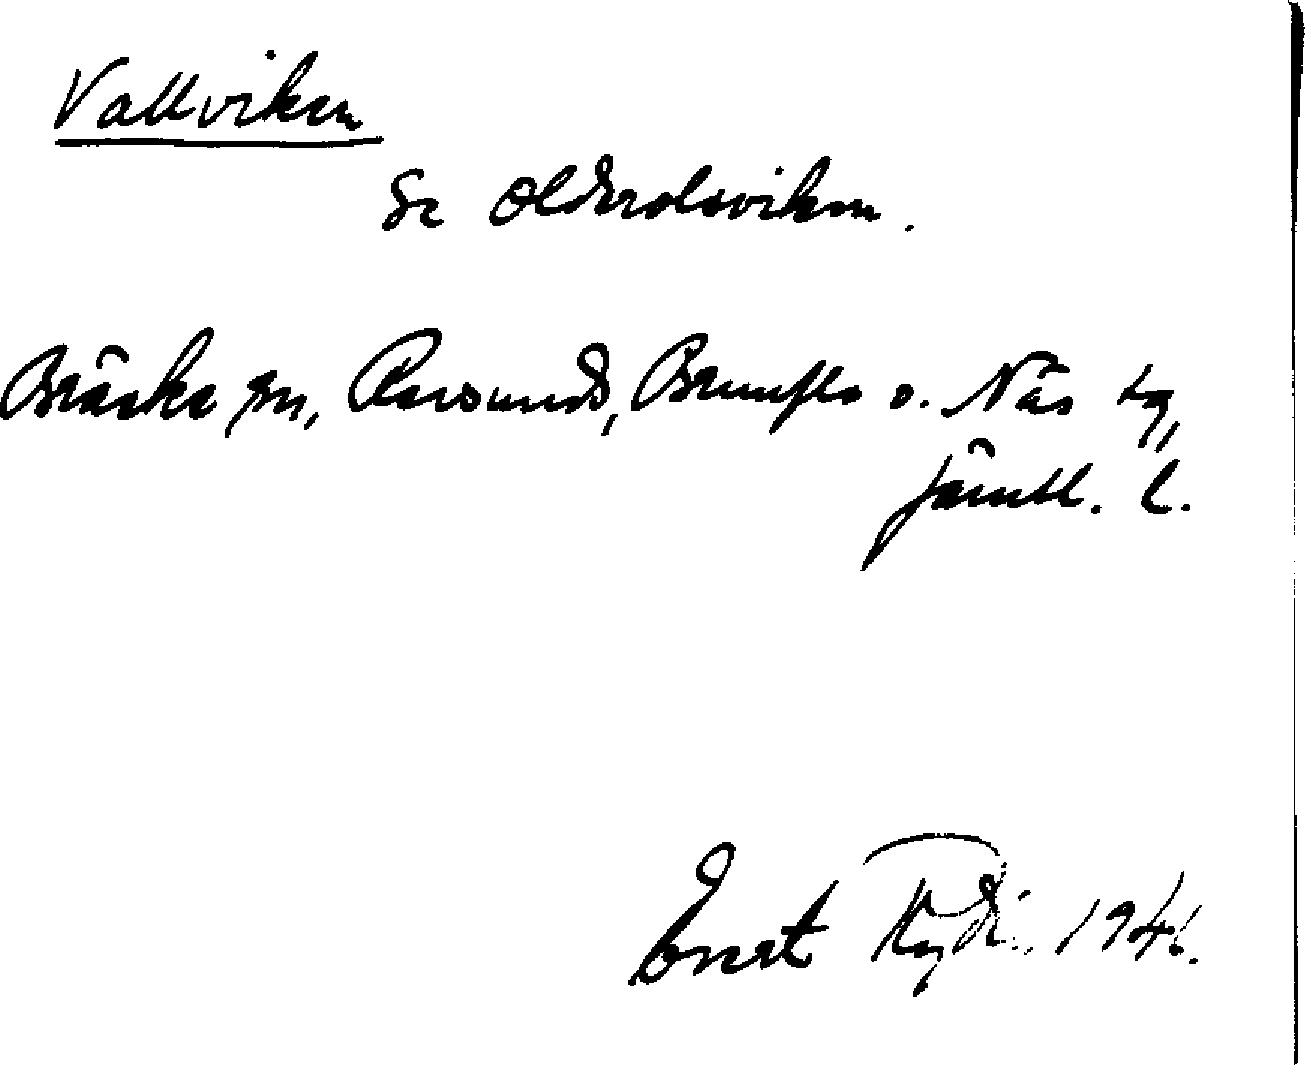 Vallviken
Se Olderolsviken.
Bräcke sn, Revsunds, Brunflo o. Näs tg,
Jämtl. l.
Evert Rydin 1941.